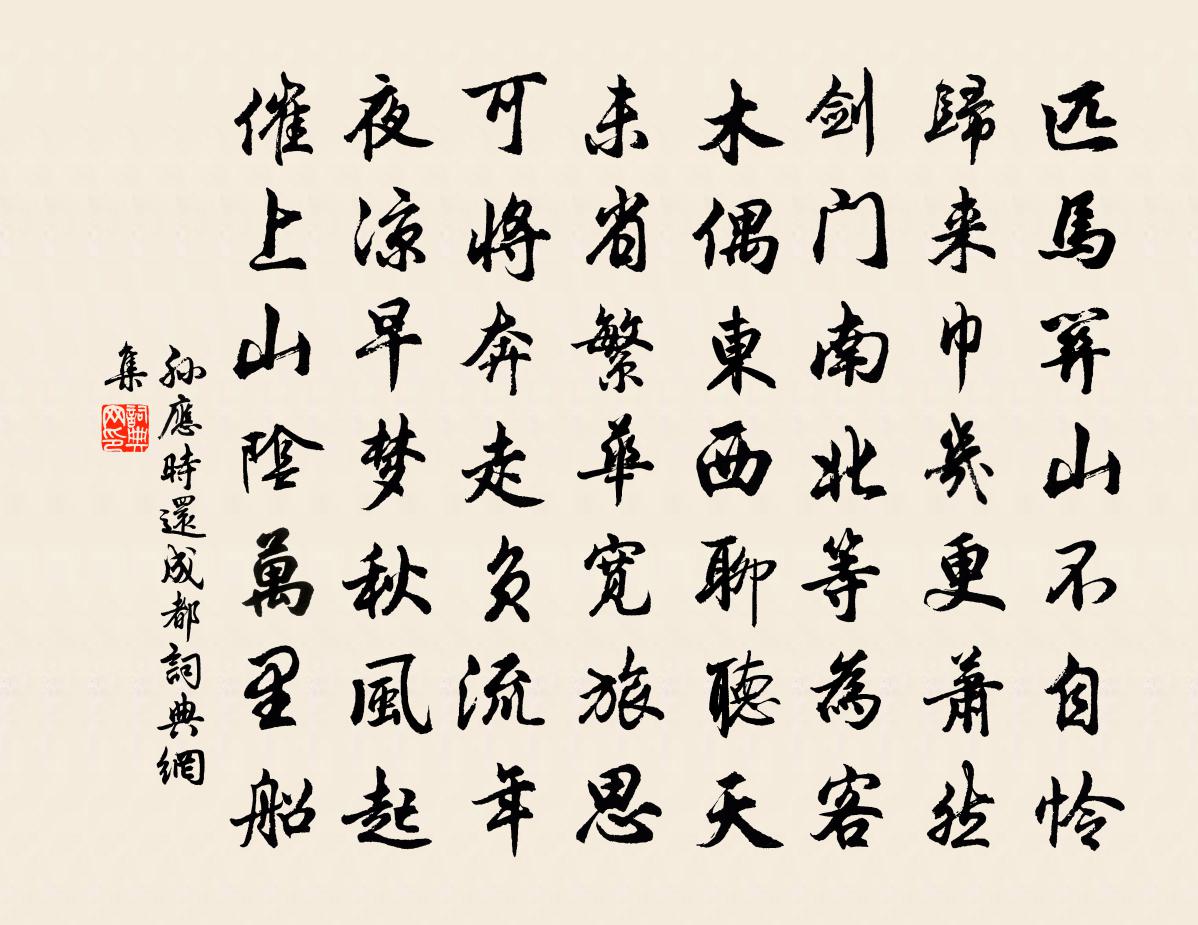 匹馬関山不自怜
歸来巾幾更蕭然
剑门南北等為客
木偶東西聊聽天
未省繁華寬旅思
可將奔走負流年
夜凉早梦秋風起
催上山陰萬里船
孫應時還成都詞典網
集
詞典网印